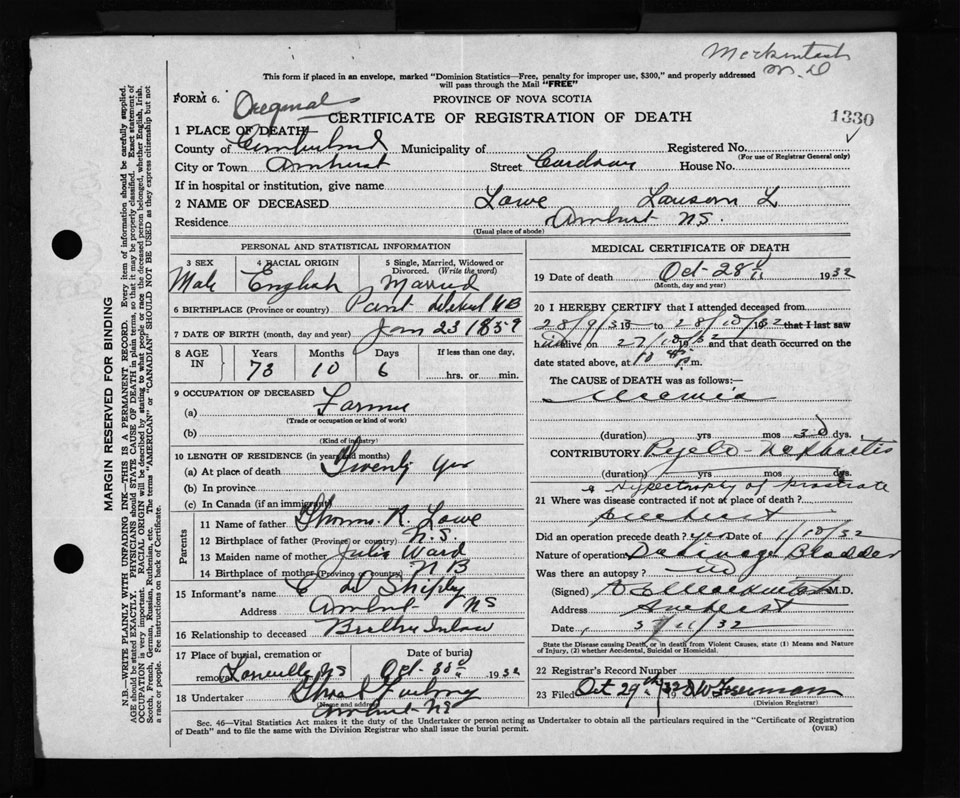 McKintosh
M.D
This form if placed in an envelope, marked "Dominion Statistics—Free, penalty for improper use, $300," and properly addressed
will pass through the Mail "FREE"
FORM 6. Original PROVINCE OF NOVA SCOTIA
CERTIFICATE OF REGISTRATION OF DEATH 1330
1 PLACE OF DEATH
County of Cumberland Municipality of Registered No.
(For use of Registrar General only)
City or Town Amherst Street House No.
If in hospital or institution, give name
2 NAME OF DECEASED Lowe Lawson L
Residence Amherst N.S.
(Usual place of abode)
MARGIN RESERVED FOR BINDING
N.B.—WRITE PLAINLY WITH UNFADING INK—THIS IS A PERMANENT RECORD. Every item of information should be carefully supplied.
AGE should be stated EXACTLY. PHYSICIANS should STATE CAUSE OF DEATH in plain terms, so that it may be properly classified. Exact statement of
OCCUPATION is very important. RACIAL ORIGIN will be described by stating to what people or race the deceased person belonged, whether English, Irish,
Scotch, French, German, Russian, Ruthenian, etc. The terms "AMERICAN" or "CANADIAN" SHOULD NOT BE USED as they express citizenship but not
a race or people. Fee instructions on back of Certificate.
PERSONAL AND STATISTICAL INFORMATION
3 SEX 4 RACIAL ORIGIN 5 Single, Married, Widowed or
Divorced. (Write the word)
Male English Married
6 BIRTHPLACE (Province or country) Point de Bute N B
7 DATE OF BIRTH (month, day and year) Jan 23 1859
8 AGE IN Years Months Days If less than one day,
73 10 6 hrs. or min.
9 OCCUPATION OF DECEASED
(a) Farmer
(Trade or occupation or kind of work)
(b)
(Kind of industry)
10 LENGTH OF RESIDENCE (in years and months)
(a) At place of death Twenty yrs
(b) In province
(c) In Canada (if an immigrant)
Parents
11 Name of father Thomas R. Lowe
12 Birthplace of father (Province or country) N.S.
13 Maiden name of mother Julia Ward
14 Birthplace of mother (Province or country) N B
15 Informant's name Shipley
Address Amherst NS
16 Relationship to deceased Brother Inlaw
17 Place of burial, cremation or Date of burial
removal NS Oct. 30 1932
18 Undertaker
(Name and address)
Amherst NS
MEDICAL CERTIFICATE OF DEATH
19 Date of death Oct - 28 1932
(Month, day and year)
20 I HEREBY CERTIFY that I attended deceased from
28/9/32 to 28/10/32 that I last saw
him alive on 27/10/32 and that death occurred on the
date stated above, at 10 P.m.
The CAUSE OF DEATH was as follows:
Uraemia
(duration) yrs mos 30 dys.
CONTRIBUTORY Pyelo-nephritis
(duration) yrs mos dys.
& Hypertrophy of prostrate
21 Where was disease contracted if not at place of death?
Amherst
Did an operation precede death? yes Date of 1/10/32
Nature of operation Drainage Bladder
Was there an autopsy? no
(Signed) M.D.
Address Amherst
Date 3/11/32
State the Disease causing Death, or in death from Violent Causes, state 1) Means and Nature
of Injury, (2) whether Accidental, Suicidal or Homicidal.
22 Registrar's Record Number
23 Filed Oct 29th 1932
(Division Registrar)
Sec. 46—Vital Statistics Act makes it the duty of the Undertaker or person acting as Undertaker to obtain all the particulars required in the "Certificate of Registration
of Death" and to file the same with the Division Registrar who shall issue the burial permit. (OVER)